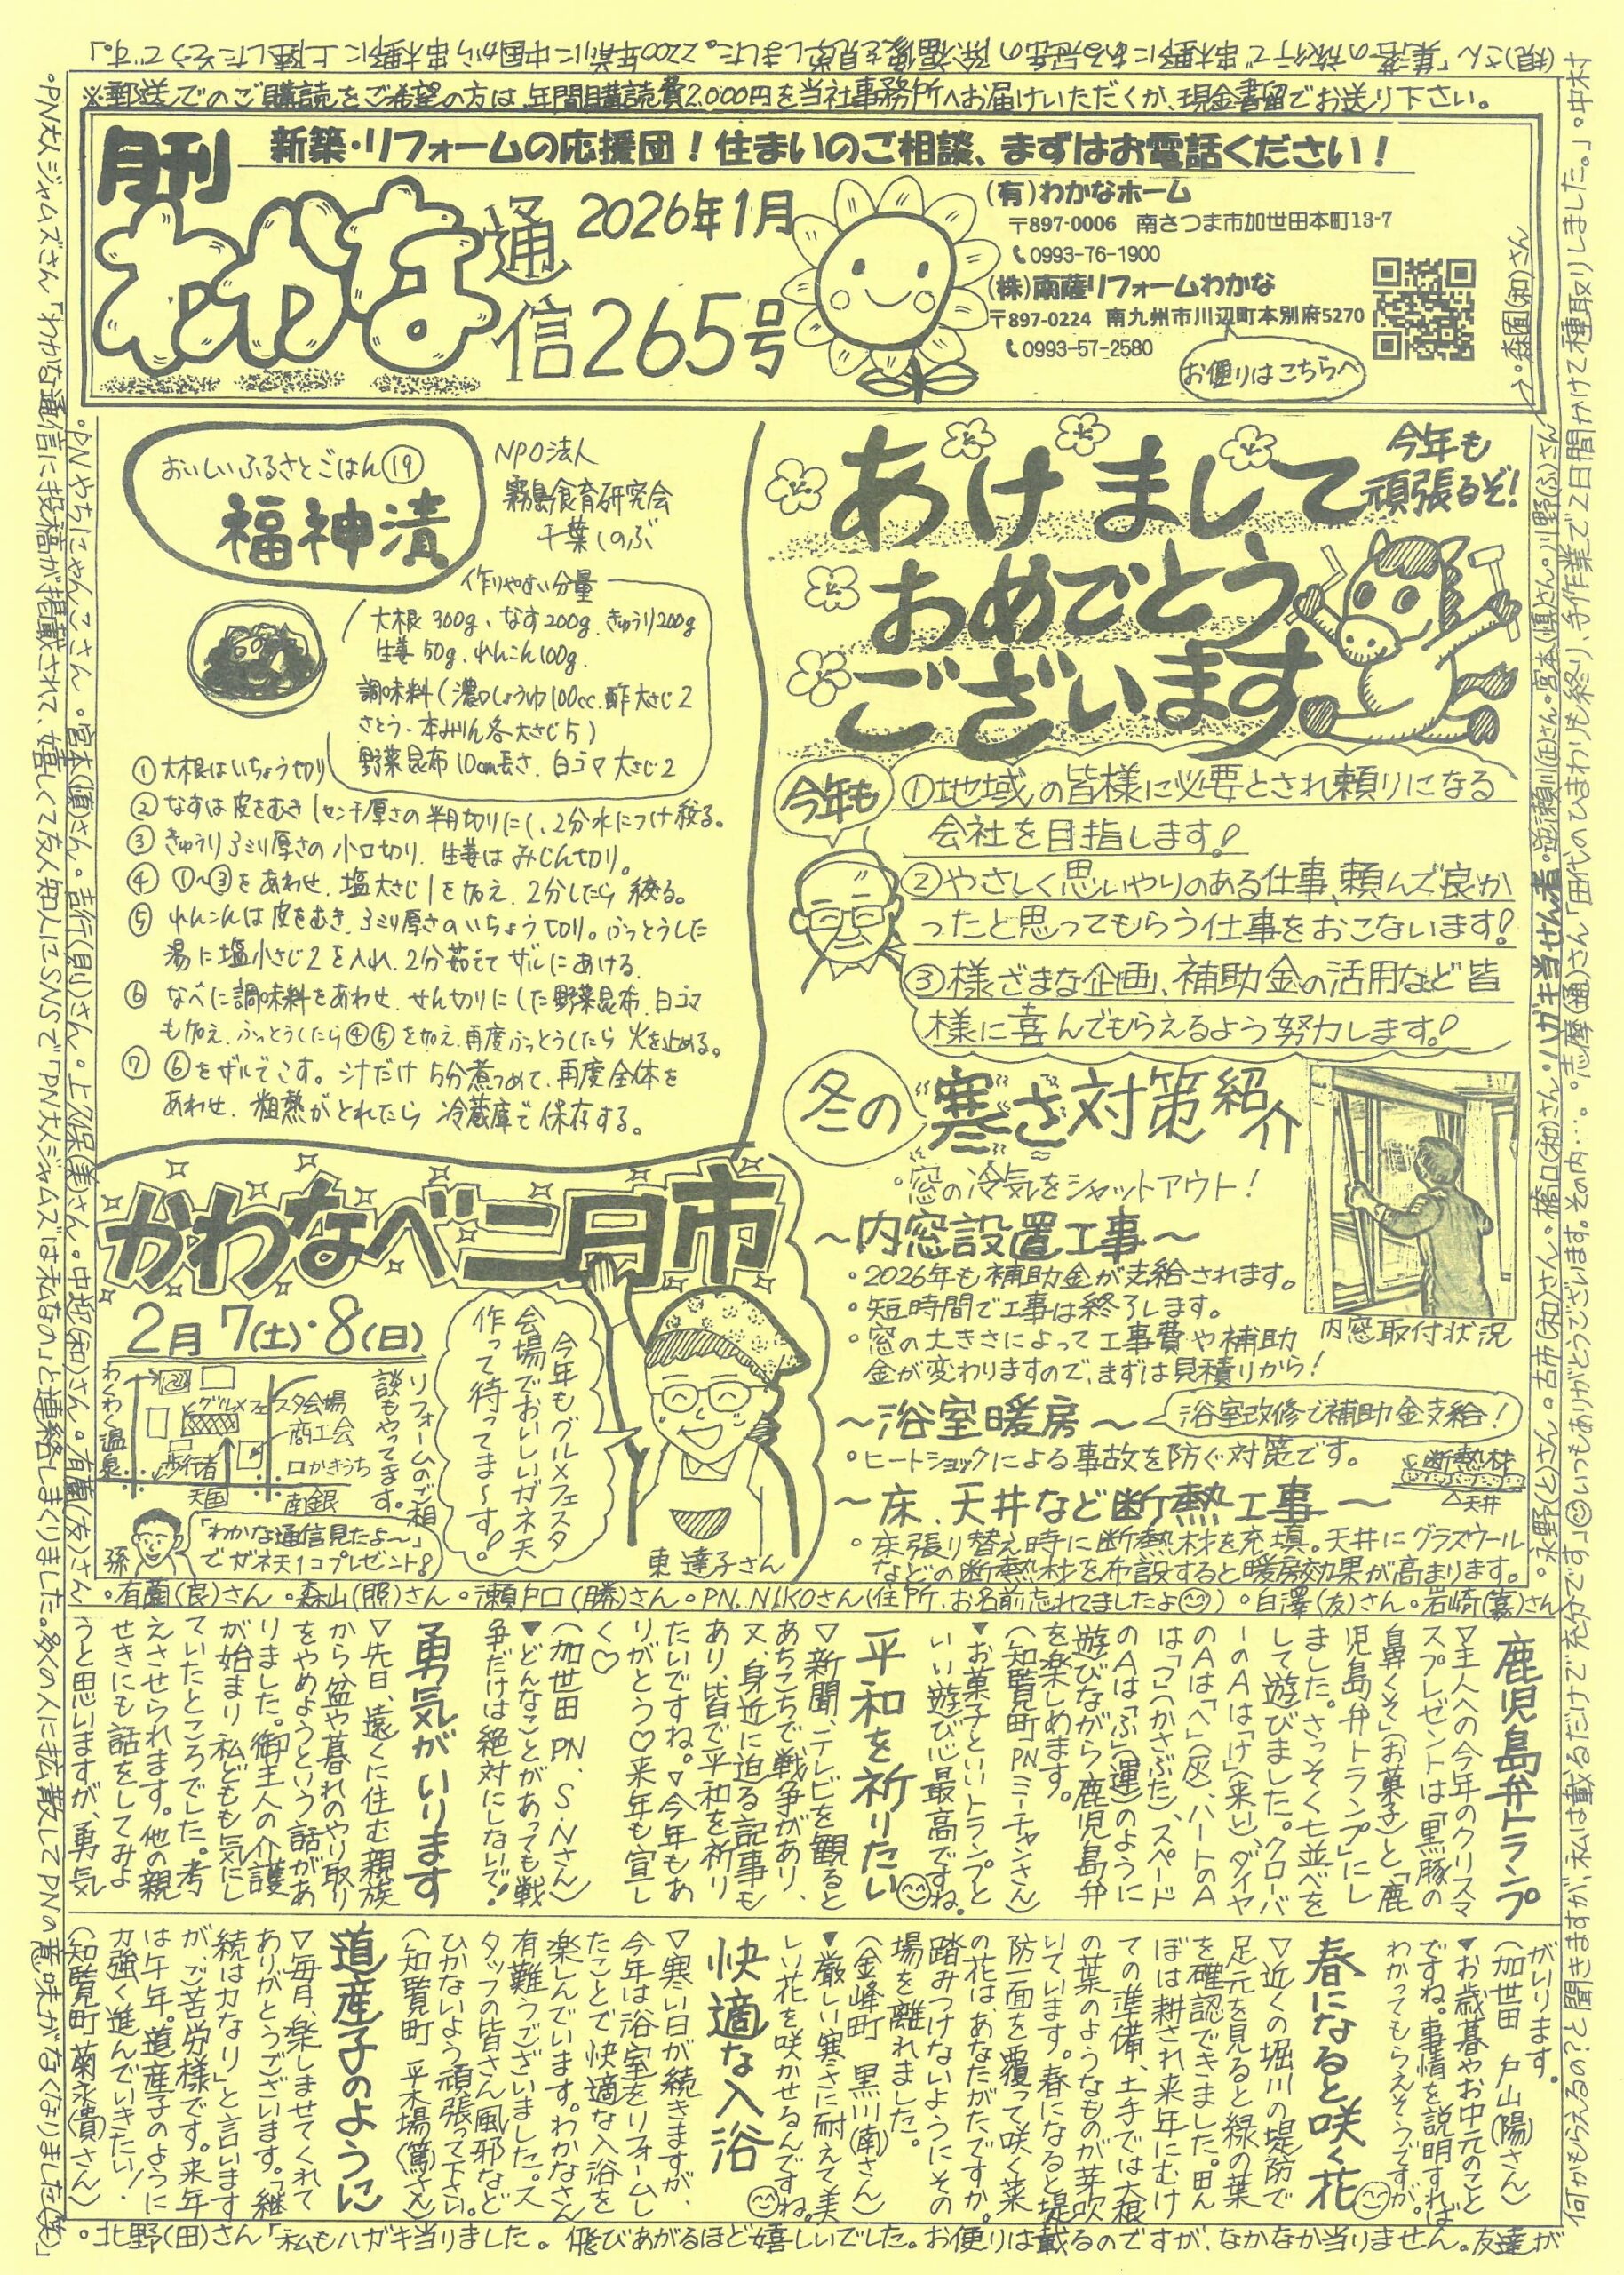 ※郵送でのご購読をご希望の方は、年間購読費2,000円を当社事務所へお届けいただくか、現金書留でお送り下さい。
月刊
新築・リフォームの応援団！住まいのご相談、まずはお電話ください！
わかな
通信
2026年1月
265号
(有)わかなホーム
〒897-0006 南さつま市加世田本町13-7
0993-76-1900
(株)南薩リフォームわかな
〒897-0224 南九州市川辺町本別府5270
0993-57-2580
お便りはこちらへ
おいしいふるさとごはん⑲
福神漬
NPO法人
霧島食育研究会
千葉しのぶ
作りやすい分量
大根 300g、なす200g、きゅうり200g
生姜 50g、れんこん100g、
調味料(濃口しょうゆ100cc、酢大さじ2
さとう、本みりん各大さじ5)
野菜昆布10cm長さ、白ゴマ大さじ2
①大根はいちょう切り
②なすは皮をむき1センチ厚さの半月切りにし、2分水につけ絞る。
③きゅうり3ミリ厚さの小口切り、生姜はみじん切り。
④①~③をあわせ、塩大さじ1を加え、2分したら絞る。
⑤れんこんは皮をむき、3ミリ厚さのいちょう切り。ふっとうした
湯に塩小さじ2を入れ、2分茹でてザルにあける。
⑥なべに調味料をあわせ、せん切りにした野菜昆布、白ゴマ
も加え、ふっとうしたら④⑤を加え、再度ふっとうしたら火を止める。
⑦⑥をザルでこす。汁だけ5分煮つめて、再度全体を
あわせ、粗熱がとれたら冷蔵庫で保存する。
あけまして
おめでとう
ございます
今年も
頑張るぞ！
今年も
①地域の皆様に必要とされ頼りになる
会社を目指します！
②やさしく思いやりのある仕事、頼んで良か
ったと思ってもらう仕事をおこないます！
③様ざまな企画、補助金の活用など皆
様に喜んでもらえるよう努力します！
冬の寒さ対策紹介
・窓の冷気をシャットアウト！
～内窓設置工事～
・2026年も補助金が支給されます。
・短時間で工事は終了します。
・窓の大きさによって工事費や補助
金が変わりますので、まずは見積りから！
内窓取付状況
～浴室暖房～
浴室改修で補助金支給！
・ヒートショックによる事故を防ぐ対策です。
断熱材
天井
～床、天井など断熱工事～
・床張り替え時に断熱材を充填。天井にグラスウール
などの断熱材を布設すると暖房効果が高まります。
かわなべ二日市
2月7(土)・8(日)
わくわく温泉
グルメフェスタ会場
商工会
かきうち
歩行者
天国
南銀
リフォームのご相
談もやってます。
今年もグルメフェスタ
会場でおいしいガネ天
作って待ってま～す！
東達子さん
孫
「わかな通信見たよ～」
でガネ天1コプレゼント！
・有薗(良)さん ・森山(照)さん ・瀬戸口(勝)さん ・PN.NIKOさん(住所、お名前忘れてましたよ) ・白澤(友)さん ・岩崎(嘉)さん
鹿児島弁トランプ
▽主人への今年のクリスマ
スプレゼントは「黒豚の
鼻くそ」(お菓子)と「鹿
児島弁トランプ」にし
ました。さっそく七並べを
して遊びました。クローバ
ーのAは「け」(来い)、ダイヤ
のAは「へ」(灰)、ハートのA
は「つ」(かさぶた)、スペード
のAは「ふ」(運)のように
遊びながら鹿児島弁
を楽しめます。
(知覧町 PNミーチャンさん)
▼お菓子といいトランプと
いい遊び心最高ですね。
平和を祈りたい
▽新聞、テレビを観ると
あちこちで戦争があり、
又、身近に迫る記事も
あり、皆で平和を祈り
たいですね。▽今年もあ
りがとう♡来年も宜し
く♡
(加世田 PN.S.Nさん)
▼どんなことがあっても戦
争だけは絶対にしないで！
勇気がいります
▽先日、遠くに住む親族
から盆や暮れのやり取り
をやめようという話があ
りました。御主人の介護
が始まり私どもも気にし
ていたところでした。考
えさせられます。他の親
せきにも話をしてみよ
うと思いますが、勇気
がいります。
(加世田 戸山(陽)さん)
▼お歳暮やお中元のこと
ですね。事情を説明すれば
わかってもらえそうですが。
春になると咲く花
▽近くの堀川の堤防で
足元を見ると緑の葉
を確認できました。田ん
ぼは耕され来年にむけ
ての準備、土手では大根
の葉のようなものが芽吹
いています。春になると堤
防一面を覆って咲く菜
の花は、あなたがたですか。
踏みつけないようにその
場を離れました。
(金峰町 黒川(南)さん)
▼厳しい寒さに耐えて美
しい花を咲かせるんですね。
快適な入浴
▽寒い日が続きますが、
今年は浴室をリフォームし
たことで快適な入浴を
楽しんでいます。わかなさん
有難うございました。ス
タッフの皆さん風邪など
ひかないよう頑張って下さい。
(知覧町 平木場(篤)さん)
道産子のように
▽毎月、楽しませてくれて
ありがとうございます。「継
続は力なり」と言います
が、ご苦労様です。来年
は午年。道産子のように
力強く進んでいきたい！
(知覧町 菊永(貴)さん)
・ハガキ当せん者・逆瀬川(正)さん・宮本(慎)さん・川野(ふ)さん
・永野(と)さん・古市(和)さん・橋口(和)さん
・森田(和)さん
・PNやちにゃんこさん ・宮本(慎)さん ・吉行(則)さん ・上久保(美)さん ・中迎(和)さん ・有薗(友)さん
・北野(田)さん「私もハガキ当りました。飛びあがるほど嬉しいでした。お便りは載るのですが、なかなか当りません。友達が
何かもらえるの？と聞きますが、私は載るだけで充分です」いつもありがとうございます。その内…。・志摩(通)さん「田代のひまわりも終り、手作業で2日間かけて種取りしました。」・中村
(親)さん「集落の旅行で串木野にある冠岳の徐福像を見学しました。2200年前に中国から串木野に上陸したそうです。」
・PN大人ジャムズさん「わかな通信に投稿が掲載されて、嬉しくて友人知人にSNSで「PN大人ジャムズは私なの」と連絡しまくりました。多くの人に拡散してPNの意味がなくなりました(笑)」